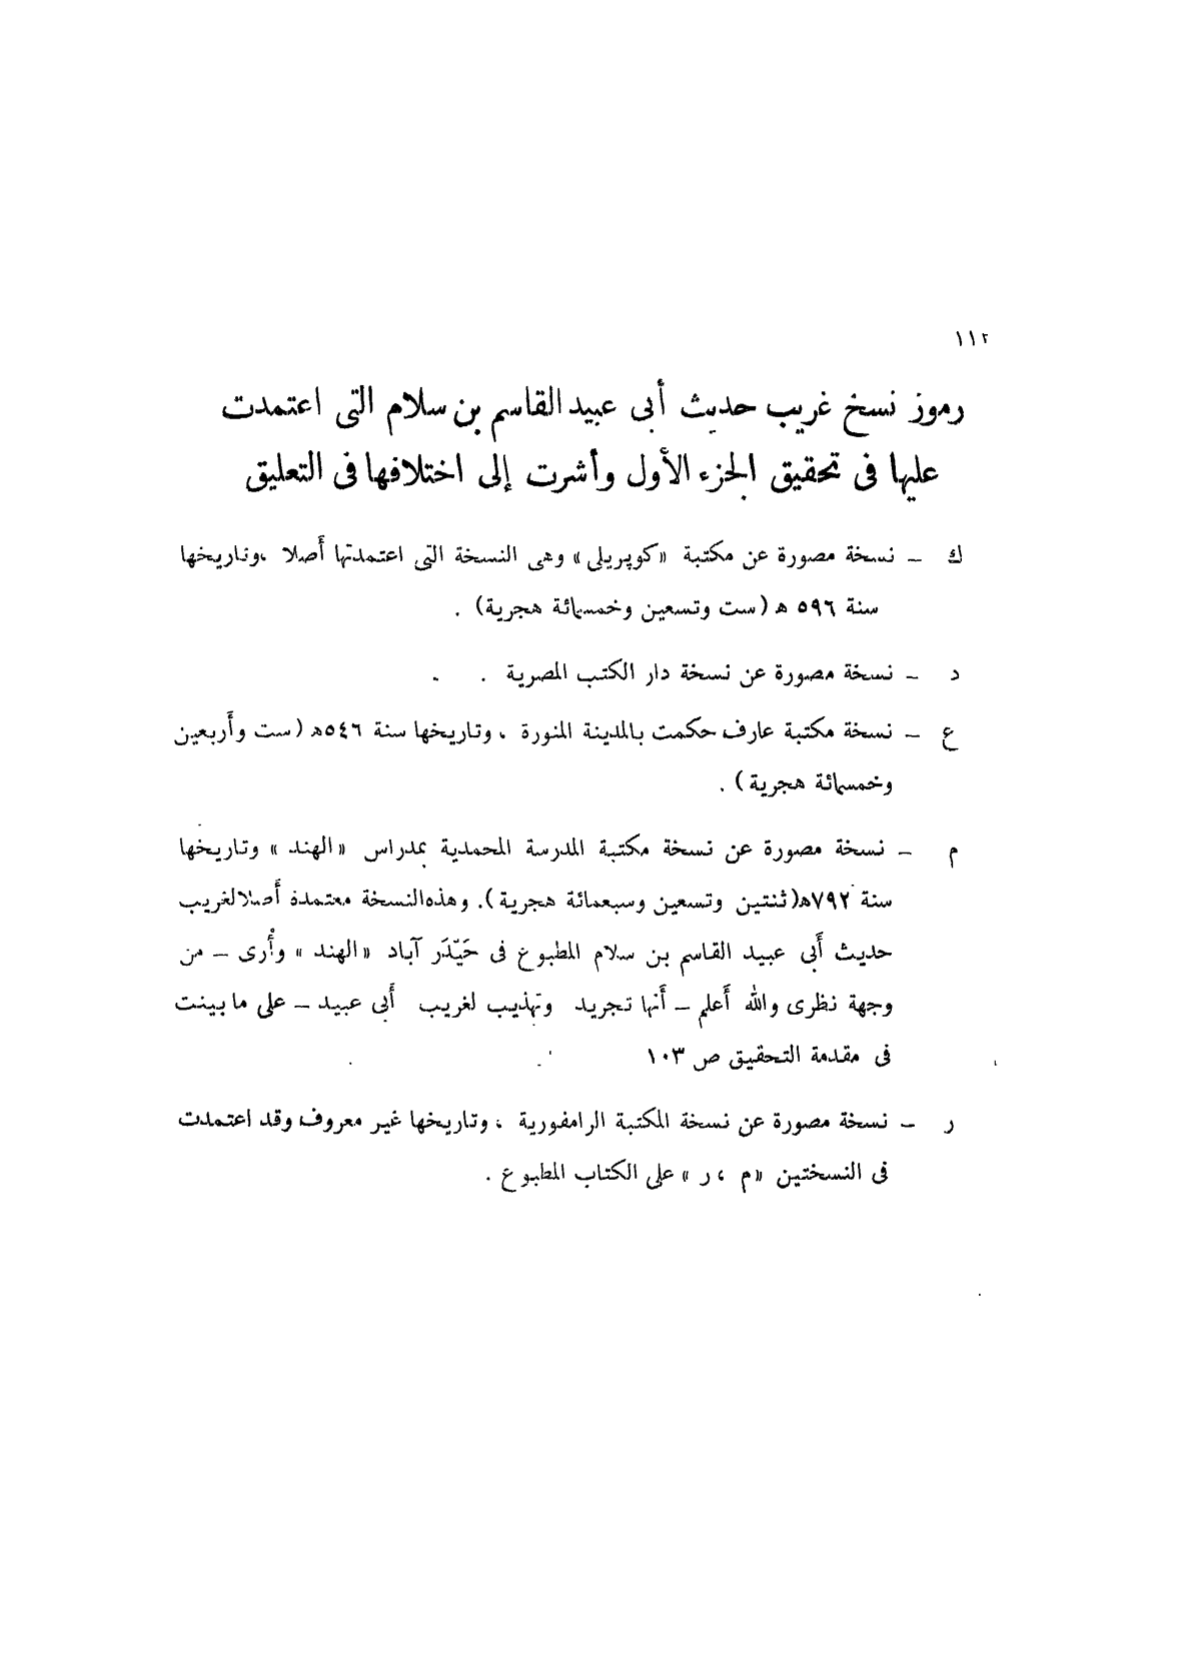 ١١٢
رموز نسخ غريب حديث أبى عبيد القاسم بن سلام التى اعتمدت
عليها فى تحقيق الجزء الأول وأشرت إلى اختلافها فى التعليق
ك – نسخة مصورة عن مكتبة «كوپريلى» وهى النسخة التى اعتمدتها أصلا ، وتاريخها
سنة ٥٩٦ ه (ست وتسعين وخمسمائة هجرية) .
د – نسخة مصورة عن نسخة دار الكتب المصرية .
ع – نسخة مكتبة عارف حكمت بالمدينة المنورة ، وتاريخها سنة ٥٤٦ه (ست وأربعين
وخمسمائة هجرية) .
م – نسخة مصورة عن نسخة مكتبة المدرسة المحمدية بمدراس «الهند» وتاريخها
سنة ٧٩٢ه (ثنتين وتسعين وسبعمائة هجرية). وهذه النسخة معتمدة أصلا لغريب
حديث أبى عبيد القاسم بن سلام المطبوع فى حَيْدَر آباد «الهند» وأُرى – من
وجهة نظرى والله أعلم – أنها تجريد وتهذيب لغريب أبى عبيد – على ما بينت
فى مقدمة التحقيق ص ١٠٣
ر – نسخة مصورة عن نسخة المكتبة الرامفورية ، وتاريخها غير معروف وقد اعتمدت
فى النسختين «م ، ر» على الكتاب المطبوع .